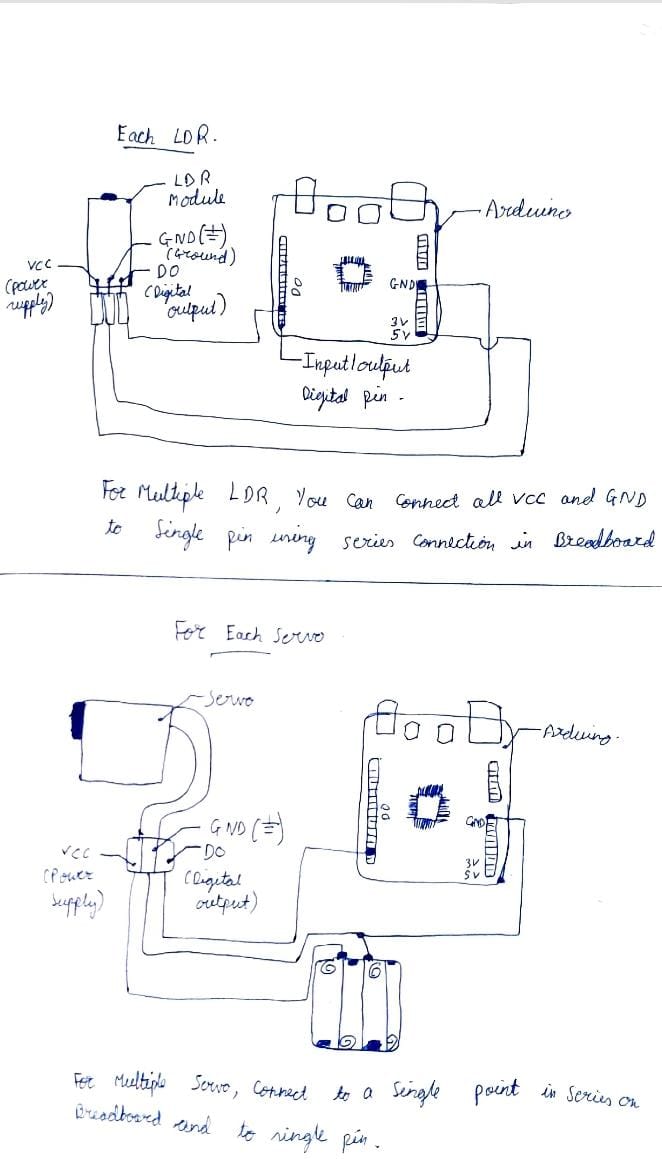 Each LDR.
LDR
Module
GND(⏚)
(Ground)
DO
(Digital
output)
VCC
(power
supply)
Arduino
DO
GND
3V
5V
Input/output
Digital pin.
For Multiple LDR, You can connect all VCC and GND
to Single pin using series connection in Breadboard
For Each Servo
Servo
GND(⏚)
DO
(Digital
output)
VCC
(Power
supply)
Arduino.
DO
GND
3V
5V
For Multiple Servo, connect to a single point in series on
Breadboard and to single pin.